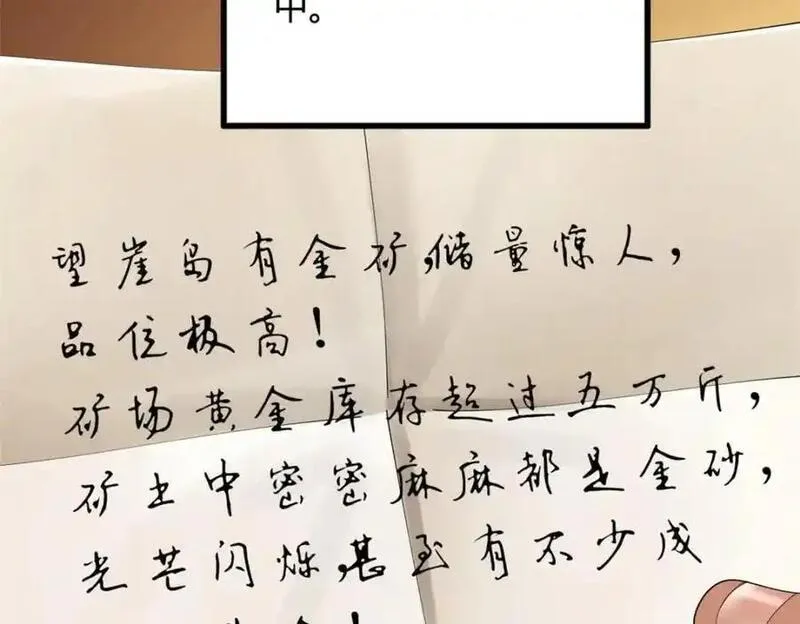 中。
望崖岛有金矿,储量惊人,
品位极高!
矿场黄金库存超过五万斤,
矿土中密密麻麻都是金砂,
光芒闪烁,甚至有不少成